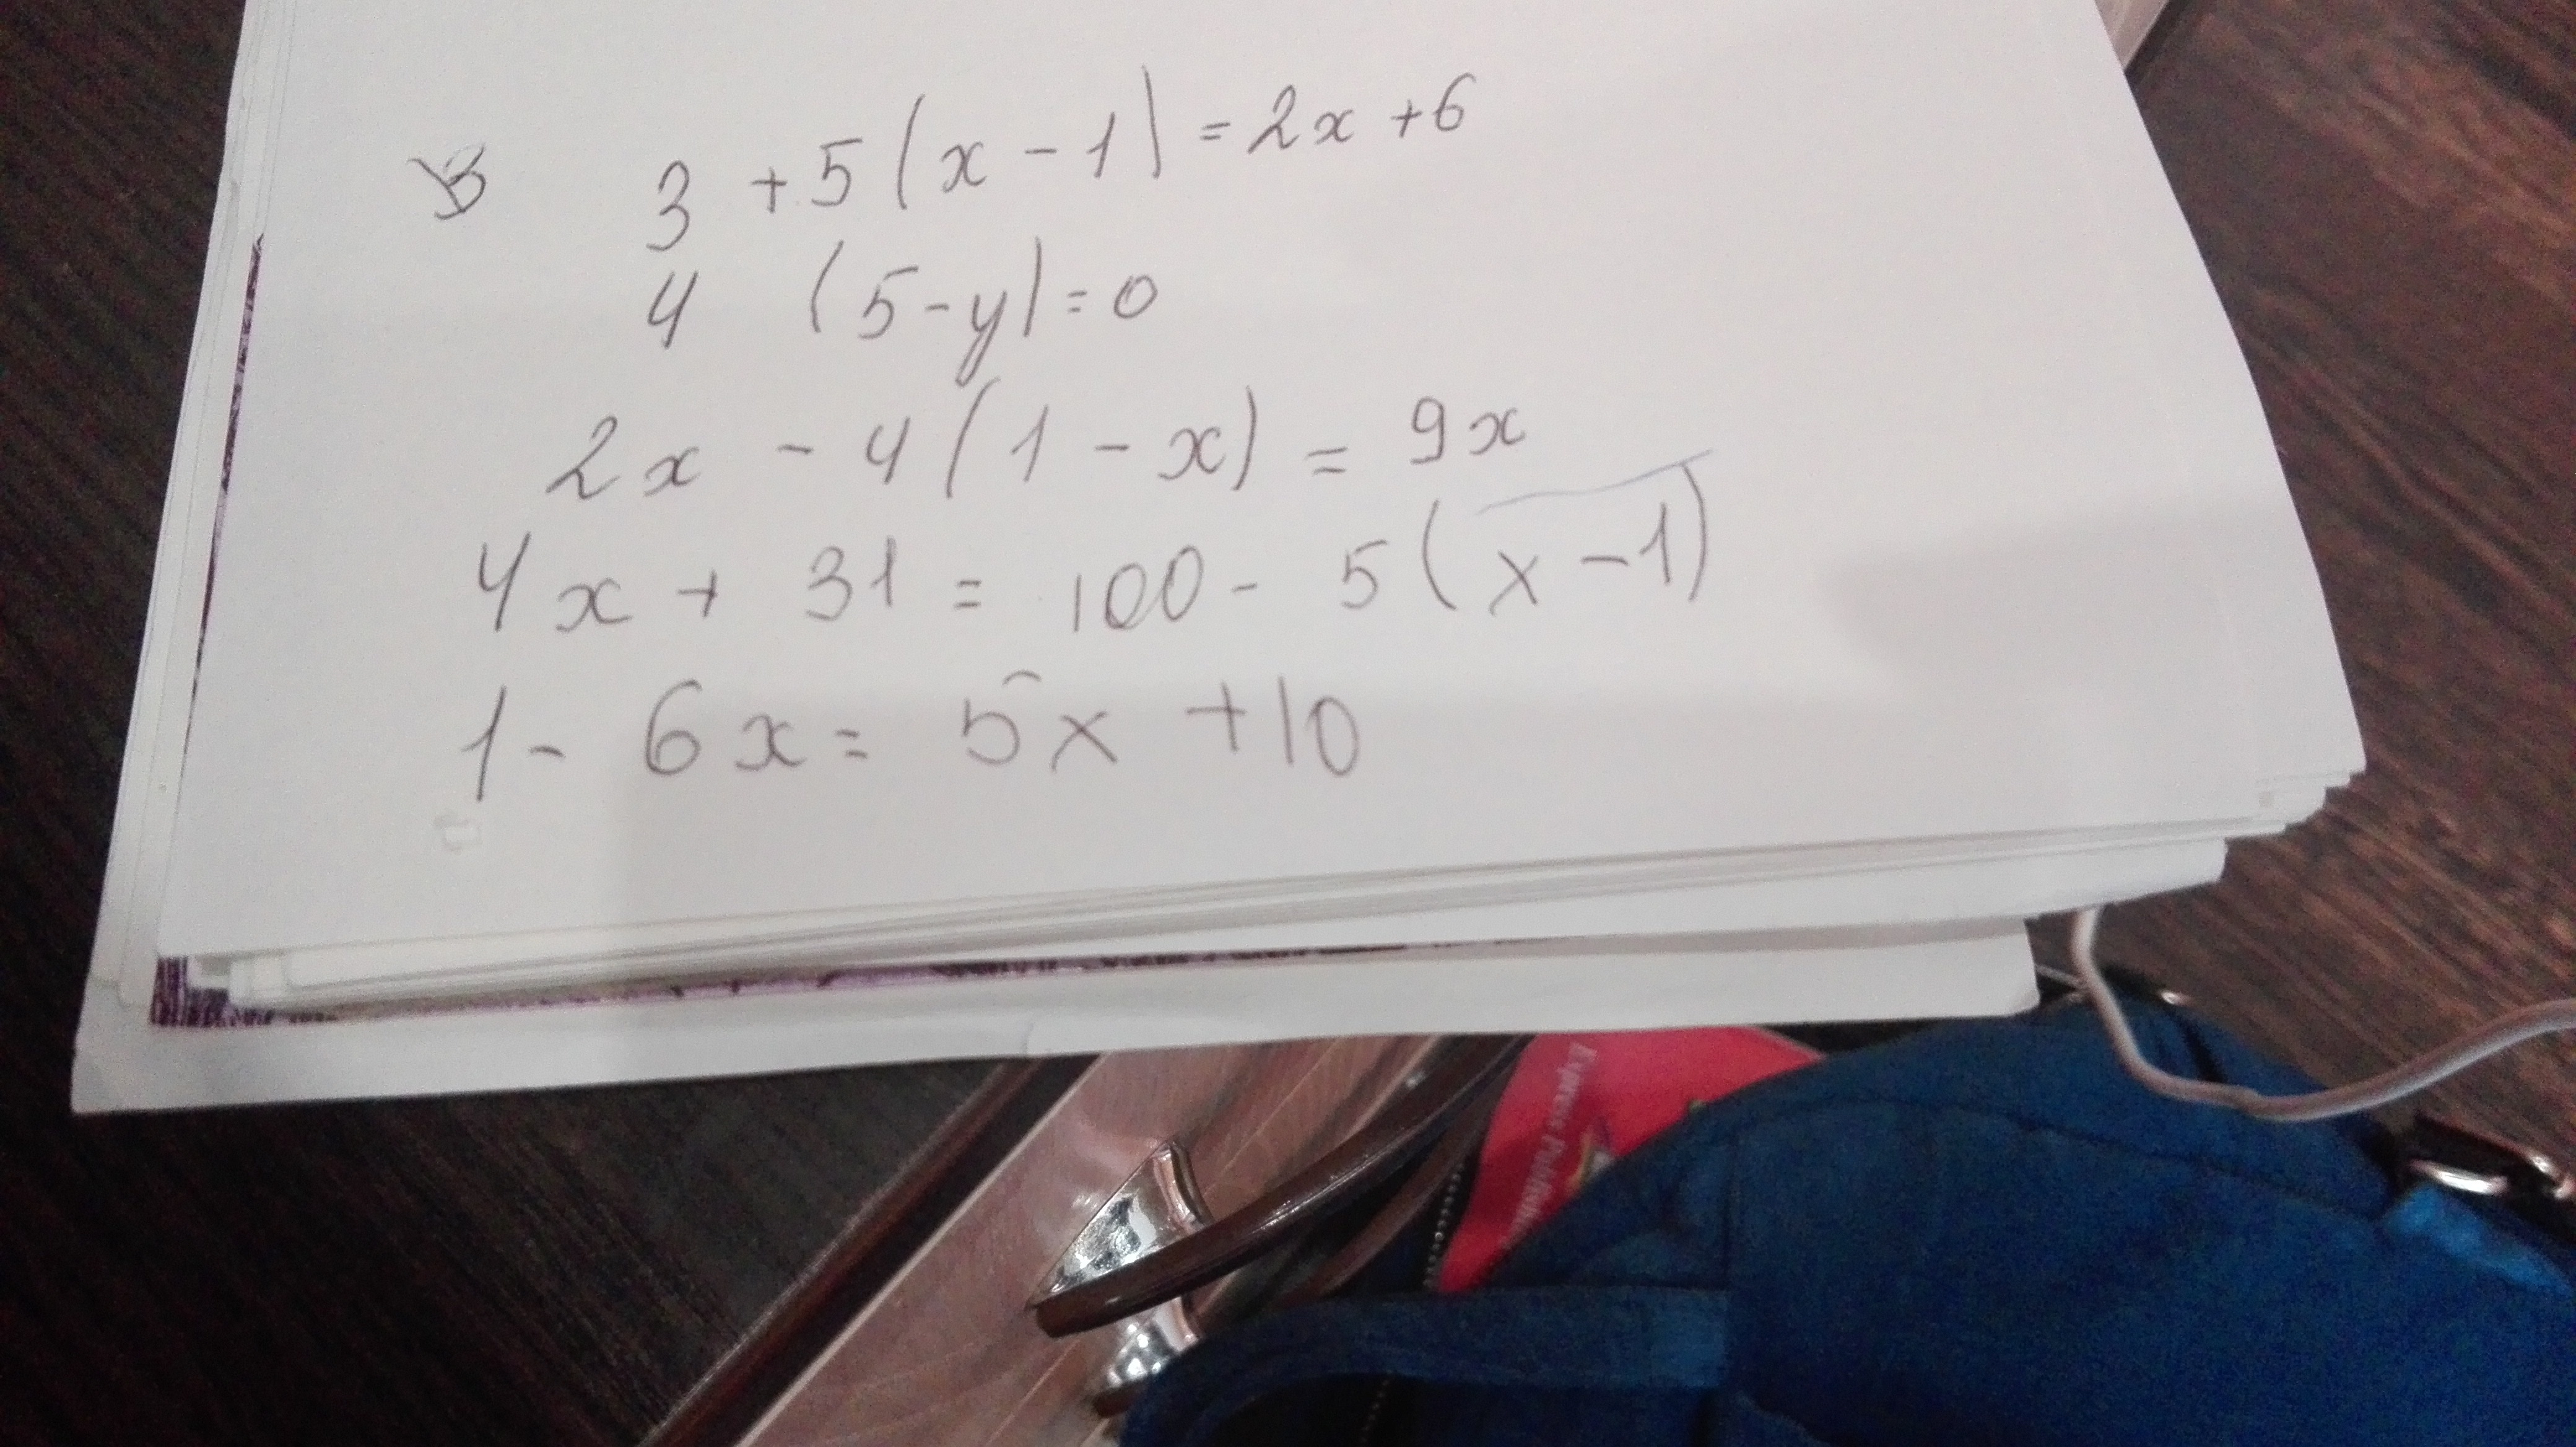 3 + 5 ( x - 1 ) = 2x + 6
4 ( 5 - y ) = 0
2x - 4 ( 1 - x ) = 9x
4x + 31 = 100 - 5 ( x - 1 )
1 - 6x = 5x + 10